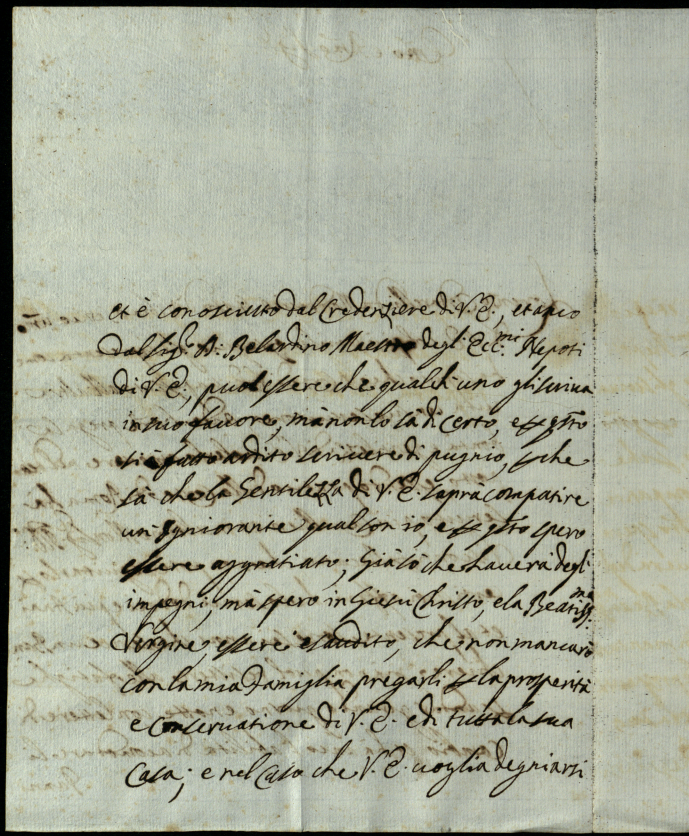 et è conosciuto dal Credenziere di V. E., et anco
dal Sigr. D: Belardino Maestro degl: Ecc.mi Nepoti
di V. E., puol essere che qualch uno gli scriva
in suo favore, mà non lo sà di certo, e per gsto
si è fatto ardito scrivere di pugnio, perche
sà che la Gentilezza di V. E. saprà compatire
un Igniorante qual son io, e per gsto spero
essere aggratiato; Già sò che haverà degl
impegni, mà spero in Giesù Christo, e la Beatiss.ma
Vergine, essere esaudito, che non mancarò
con la mia Famiglia pregarli per la prosperità
e Conservatione di V. E. e di tutta la sua
Casa; e nel Caso che V. E. voglia degniarsi